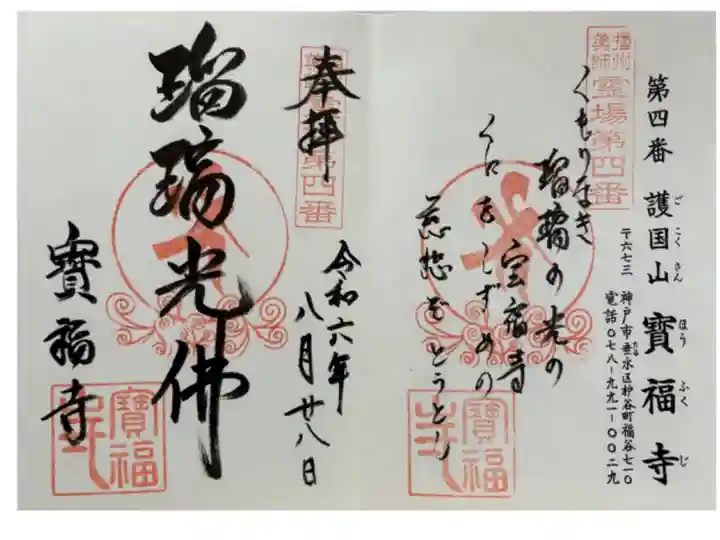 第四番 護国山 寳福寺
ごこくさん ほうふくじ
〒六七三 神戸市垂水区枦谷町福谷七一〇
たる
電話〇七八-九九一-〇〇二九
播州薬師霊場第四番
くもりなき
瑠璃の光の
宝福寺
くにをしずめの
慈悲ぞとうとし
寳福寺
奉拝
令和六年
八月廿八日
霊場第四番
瑠璃光佛
寳福寺
寳福寺